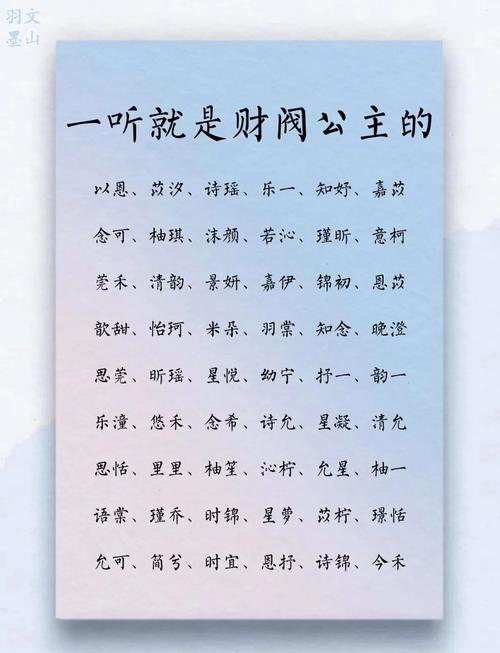 羽文
墨山
一听就是财阀公主的
以恩、苡汐、诗瑶、乐一、知妤、嘉苡
念可、柚琪、沫颜、若沁、瑾昕、意柯
莞禾、清韵、景妍、嘉伊、锦初、恩苡
歆甜、怡珂、米朵、羽棠、知念、晚澄
思莞、昕瑶、星悦、幼宁、抒一、韵一
乐潼、悠禾、念希、诗允、星凝、清允
思恬、里里、柚笙、沁柠、允星、柚一
语棠、瑾乔、时锦、星萝、苡柠、璟恬
允可、简兮、时宜、恩抒、诗锦、今禾